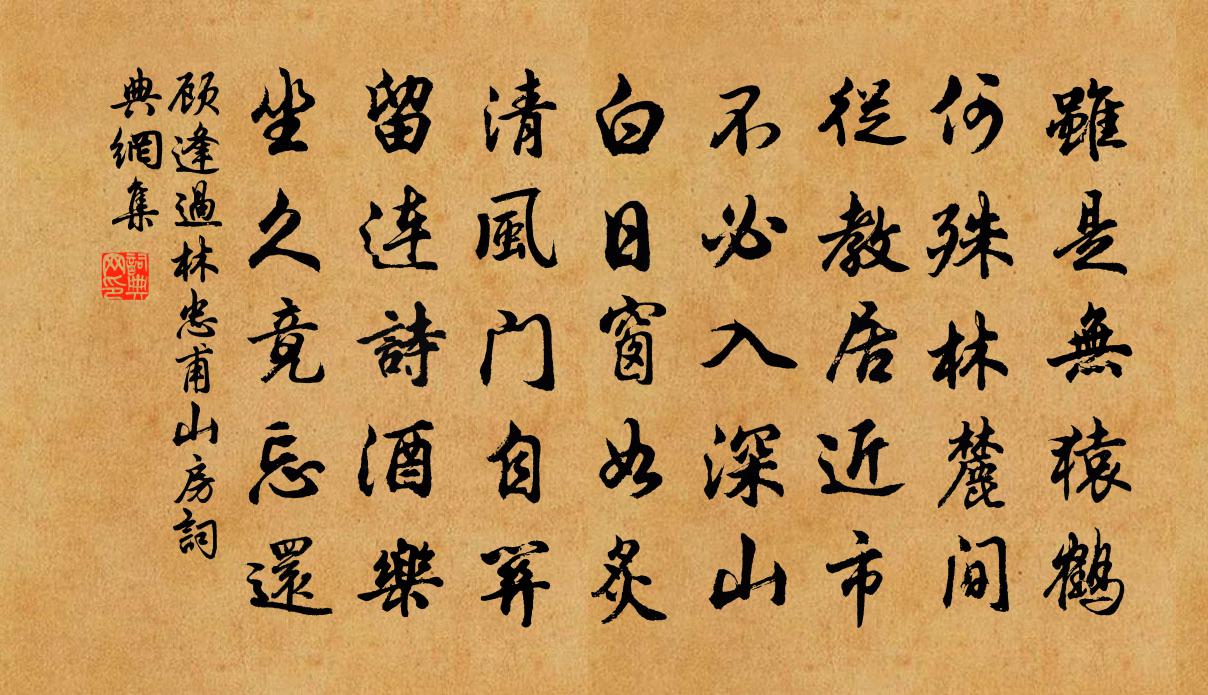 雖是無猿鶴
何殊林麓間
從教居近市
不必入深山
白日窗如炙
清風門自關
留連詩酒樂
坐久竟忘還
顾逢過林忠甫山房詞
典網集
詞典
网印